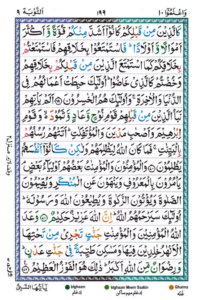 وَاعْلَمُوْٓا ١٠
١٩٩
التَّوْبَة ٩
كَالَّذِيْنَ مِنْ قَبْلِكُمْ كَانُوْٓا اَشَدَّ مِنْكُمْ قُوَّةً وَّاَكْثَرَ
اَمْوَالًا وَّاَوْلَادًا ؕ فَاسْتَمْتَعُوْا بِخَلَاقِهِمْ فَاسْتَمْتَعْتُمْ
بِخَلَاقِكُمْ كَمَا اسْتَمْتَعَ الَّذِيْنَ مِنْ قَبْلِكُمْ بِخَلَاقِهِمْ
وَخُضْتُمْ كَالَّذِيْ خَاضُوْا ؕ اُولٰٓئِكَ حَبِطَتْ اَعْمَالُهُمْ فِي
الدُّنْيَا وَالْاٰخِرَةِ ۚ وَاُولٰٓئِكَ هُمُ الْخٰسِرُوْنَ اَلَمْ يَاْتِهِمْ نَبَاُ
الَّذِيْنَ مِنْ قَبْلِهِمْ قَوْمِ نُوْحٍ وَّعَادٍ وَّثَمُوْدَ ۙ وَقَوْمِ
اِبْرٰهِيْمَ وَاَصْحٰبِ مَدْيَنَ وَالْمُؤْتَفِكٰتِ ؕ اَتَتْهُمْ رُسُلُهُمْ
بِالْبَيِّنٰتِ ۚ فَمَا كَانَ اللّٰهُ لِيَظْلِمَهُمْ وَلٰكِنْ كَانُوْٓا اَنْفُسَهُمْ
يَظْلِمُوْنَ وَالْمُؤْمِنُوْنَ وَالْمُؤْمِنٰتُ بَعْضُهُمْ اَوْلِيَآءُ بَعْضٍ
يَاْمُرُوْنَ بِالْمَعْرُوْفِ وَيَنْهَوْنَ عَنِ الْمُنْكَرِ وَيُقِيْمُوْنَ
الصَّلٰوةَ وَيُؤْتُوْنَ الزَّكٰوةَ وَيُطِيْعُوْنَ اللّٰهَ وَرَسُوْلَهٗ ؕ
اُولٰٓئِكَ سَيَرْحَمُهُمُ اللّٰهُ ؕ اِنَّ اللّٰهَ عَزِيْزٌ حَكِيْمٌ وَعَدَ
اللّٰهُ الْمُؤْمِنِيْنَ وَالْمُؤْمِنٰتِ جَنّٰتٍ تَجْرِيْ مِنْ تَحْتِهَا
الْاَنْهٰرُ خٰلِدِيْنَ فِيْهَا وَمَسٰكِنَ طَيِّبَةً فِيْ جَنّٰتِ عَدْنٍ ؕ
وَرِضْوَانٌ مِّنَ اللّٰهِ اَكْبَرُ ؕ ذٰلِكَ هُوَ الْفَوْزُ الْعَظِيْمُ
يٰٓاَيُّهَا النَّبِيُّ